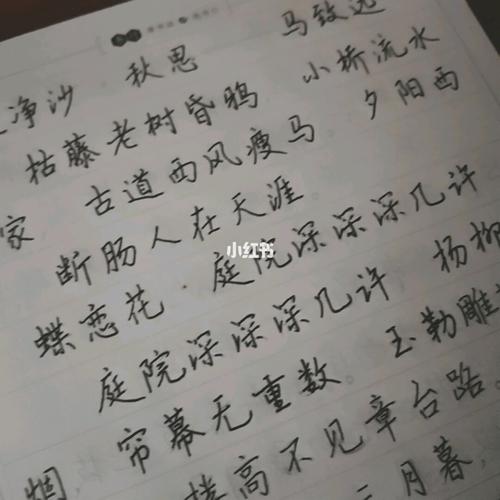 净沙 秋思 马致远
枯藤老树昏鸦 小桥流水
家 古道西风瘦马 夕阳西
断肠人在天涯
蝶恋花 庭院深深深几许
庭院深深深几许 杨柳
烟 帘幕无重数。玉勒雕
楼高不见章台路
三月暮,
小红书